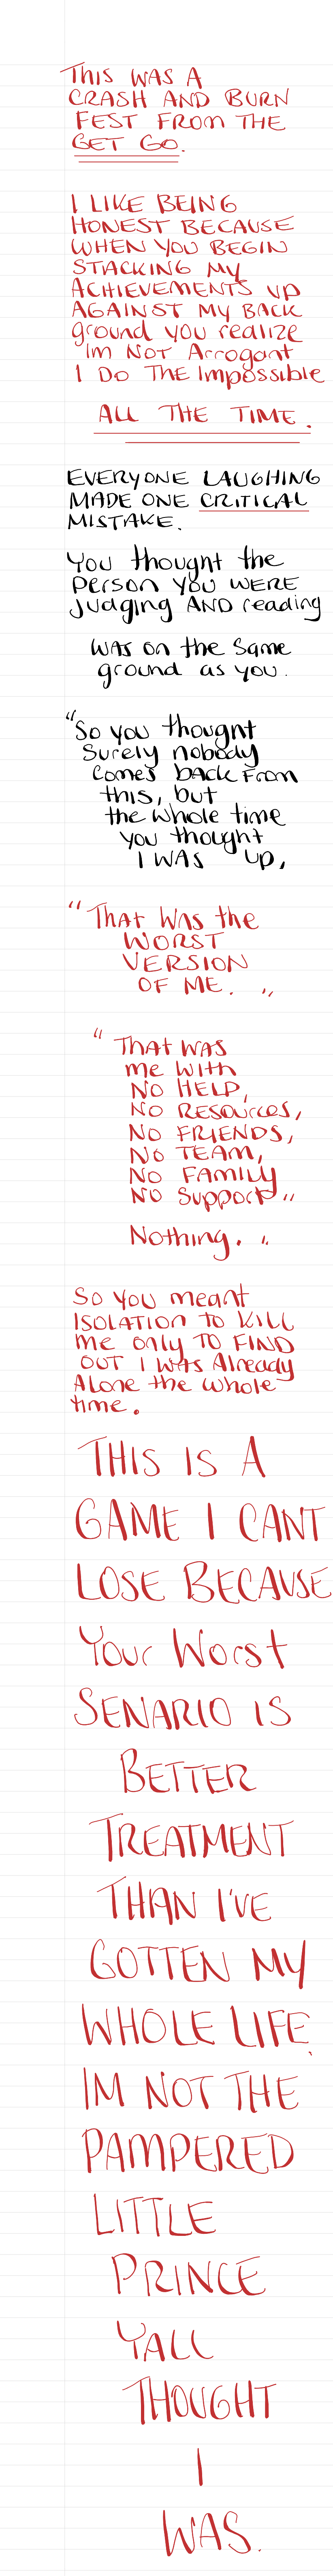 THIS WAS A
CRASH AND BURN
FEST FROM THE
GET GO.
I LIKE BEING
HONEST BECAUSE
WHEN YOU BEGIN
STACKING MY
ACHIEVEMENTS UP
AGAINST MY BACK
ground you realize
Im NOT Arrogant
I DO THE Impossible
ALL THE TIME.
EVERYONE LAUGHING
MADE ONE CRITICAL
MISTAKE.
You thought the
Person you WERE
Judging AND reading
WAS on the same
ground as you.
"So you thought
Surely nobody
Comes back From
this, but
the whole time
you thought
I WAS UP,
"THAT WAS the
WORST
VERSION
OF ME. "
"THAT WAS
me WITH
NO HELP,
NO RESOURCES,
NO FRIENDS,
NO TEAM,
NO FAMILY
NO Support"
Nothing. "
SO YOU meant
ISOLATION TO KILL
me only TO FIND
OUT I WAS Already
ALONE the whole
time.
THIS IS A
GAME I CANT
LOSE BECAUSE
Your Worst
SENARIO IS
BETTER
TREATMENT
THAN I'VE
GOTTEN MY
WHOLE LIFE.
IM NOT THE
PAMPERED
LITTLE
PRINCE
YALL
THOUGHT
I
WAS.